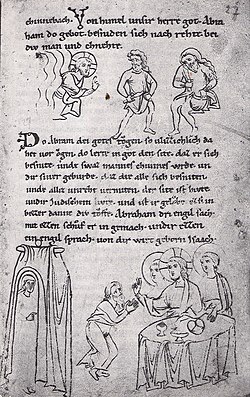 chinnebach. Von himel unsir herre got. Abra
ham do gebot. besniden sich nach rehte bei
div man und chnehte.
Do Abram dei gotes togen so
da
her vor ogen. do lerte in got den site. daz er sich
besnite. undt swaz mannes chunnes wrde. uo
dir siner geburde. daz dar alle sich besniten
undt alla unreht uermiten. der site ist hiute
undir Judischem liute. und ist in gelobe er ist in
bezzer danne div toffe. Abraham dri engil sach.
mit ezzen schuf er in gemach. undir ezzen
ein engil sprach. von dir wirt geborn Isaach.